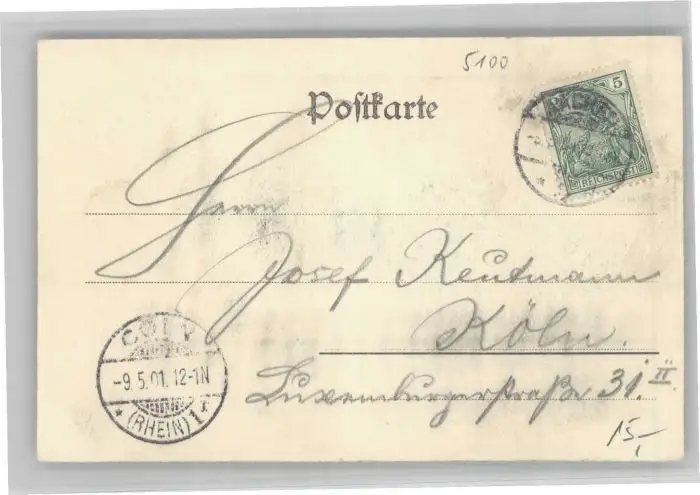 5100
Postkarte
5
REICHSPOST
Herrn
Josef Keutmann
Köln.
Luxemburgerstraße 31. II
CÖLN
-9.5.01. 12-1N
* (RHEIN) 1r
15,-